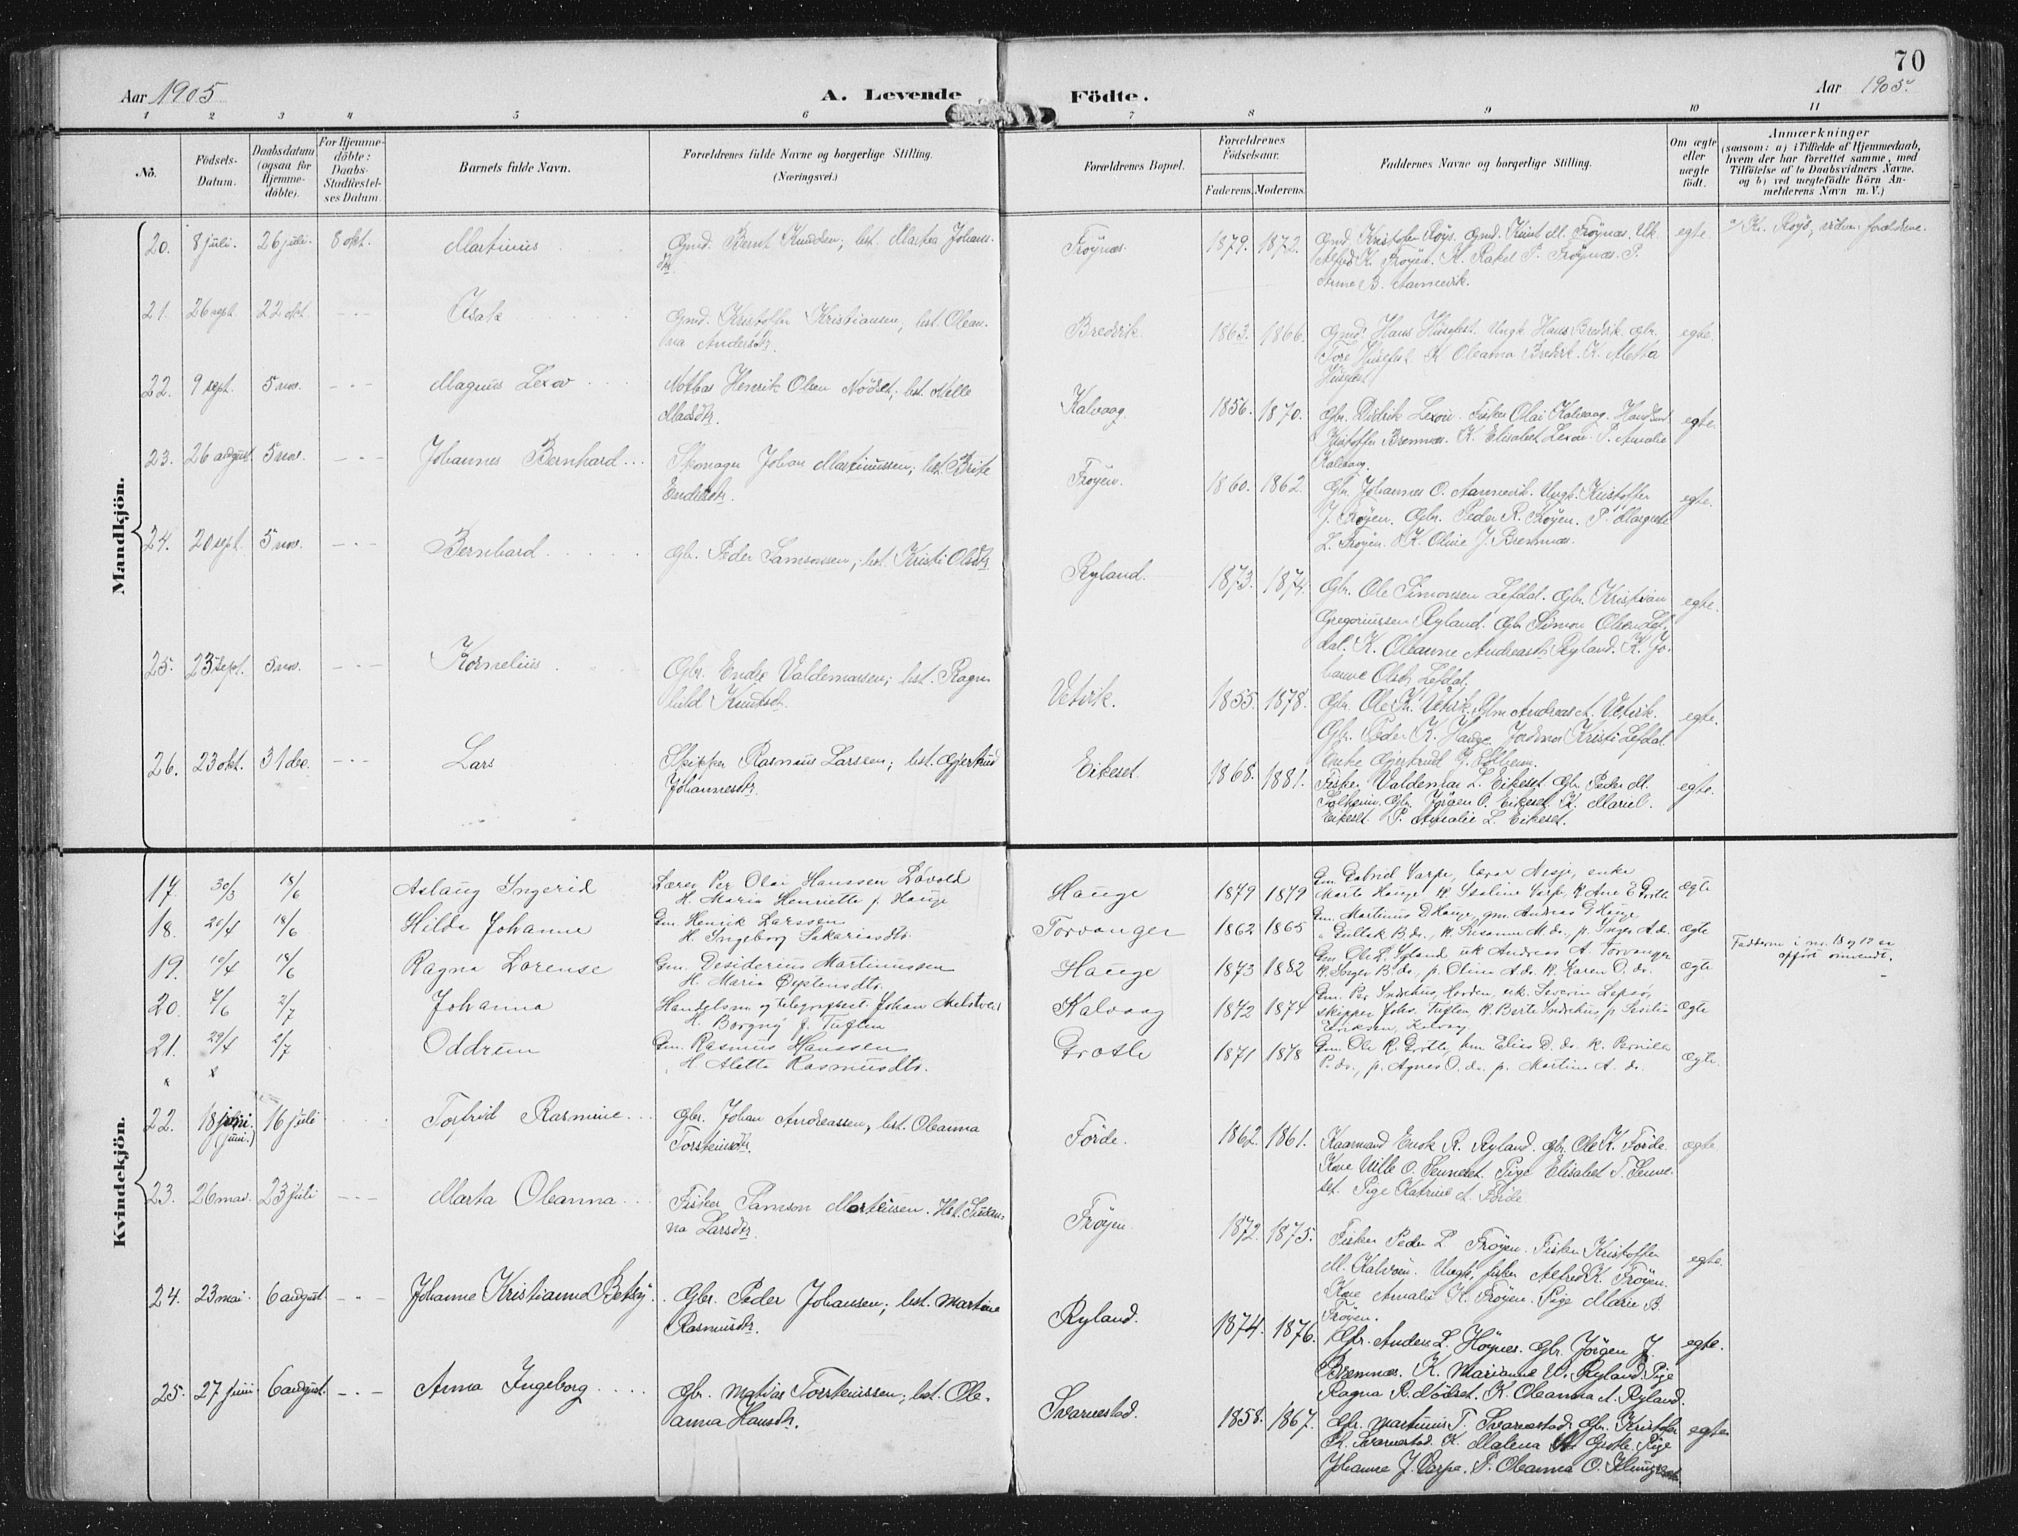 70
Aar 1905
A. Levende Födte.
Aar 1905
1 2 3 4 5 6 7 8 9 10 11
No. Födsels-Datum. Daabsdatum (ogsaa for Hjemmedöbte). For Hjemmedöbte: Daabs-Stadfæstelses Datum. Barnets fulde Navn. Forældrenes fulde Navne og borgerlige Stilling. (Næringsvei.) Forældrenes Bopæl. Forældrenes Födselsaar. Faderens. Moderens. Faddernes Navne og borgerlige Stilling. Om ægte eller uægte födt. Anmærkninger (saasom: a) i Tilfælde af Hjemmedaab, hvem der har forrettet samme, med Tilföielse af to Daabsvidners Navne. og b) ved uægtefödte Börn Anmelderens Navn m. V.)
Mandkjön.
20. 8 juli. 26 juli. 8 okt. Martinus Gmd. Bernt Knudsen; hst. Martha Johans-
dtr. Frøynæs. 1879. 1872. Gmd. Kristofer Røys. Gmd. Knut M. Frøynæs. Uk.
Alfred K. Frøyen. K. Rakel P. Frøynæs. P.
Anne B. Aamevik. egte
21. 26 sept. 22 okt. - - - Isak Gmd. Kristoffer Kristiansen; hst. Olean-
na Andersdtr. Bredvik. 1863. 1866. Gmd. Hans Husefest. Ungk. Hans Bredvik. Gbr.
Tore Husefest. K. Oleanna Bredvik. K. Metta
Husefest egte.
22. 9 sept. 5 nov. - - - Magnus Lexov Notbas Henrik Olsen Nødset; hst. Malle
Madsdtr. Kalvaag. 1856. 1870. Gbr. Didrik Lexov. Fisker Olai Kalvaag.
Kristoffer Bremnæs. K. Elisabet Lexov. P. Amalie
Kalvaag. egte.
23. 26 august 5 nov. - - - Johannes Bernhard Skomager Johan Martinussen; hst. Brite
Endresdtr. Frøyen. 1860. 1862. Gbr. Johannes O. Aamevik. Ungk. Kristoffer
J. Frøyen. Gbr. Peder R. Frøyen. P. Margrete
L. Frøyen. K. Oline J. Bremnæs. egte.
24. 20 sept. 5 nov. - - - Bernhard Gbr. Peder Samsonsen; hst. Kristi Olsdtr Ryland. 1873. 1874. Gbr. Ole Simonsen Lefdal. Gbr. Kristian
Gregoriussen Ryland. Gbr. Simon Olsen Lef-
dal. K. Oleanne Andreasdtr Ryland. K. Jo-
hanne Olsdtr Lefdal. egte.
25. 23 sept. 5 nov. - - - Kornelius Gbr. Endre Valdemarsen; hst. Ragn-
hild Knutsdtr. Vetvik. 1855. 1878. Gbr. Ole K. Vetvik. Gbr. Andreas A. Vetvik.
Gbr. Peder K. Hauge. Jordmor Kristi Lefdal.
Enke Gjertrud P. Solheim. egte.
26. 23 okt. 31 dec. - - - Lars Skipper Rasmus Larssen; hst. Gjertrud
Johannesdtr. Eikeset. 1868. 1881. Fisker Valdemar L. Eikeset. Gbr. Peder M.
Solheim. Gbr. Jörgen O. Eikeset. K. Marie L.
Eikeset. P. Amalie L. Eikeset. egte.
Kvindekjön.
17. 30/3 18/6 Aslaug Ingerid Lærer Per Olai Hanssen Løvold
H. Maria Henriette f. Hauge Hauge 1879 1879 Gm. Gabriel Varpe, lærar Nesje, enke
Marte Hauge, K. Ysaline Varpe, K. Ane E Grotle Ægte
18. 20/4 18/6 Hilda Johanne Gm. Henrik Larssen
H. Ingeborg Sakariasdtr. Torvanger 1862 1865 Gm. Martinus D Hauge, gm. Andreas G Hauge
Gullek B. do., K. Susanne M. do., p. Inger A. do. Ægte
19. 10/4 18/6 Ragna Lorense Gm. Desiderius Martinussen
H. Maria Øystensdtr. Hauge 1873 1882 Gm Ole L. Nyland uk Andreas A Torvanger
K. Inger B. do., p. Olina A. do. K. Karen D. do. Ægte Fadderne i nr. 18 og 19 er
opført omvendt.
20. 7/6 2/7 Johanna Handelsm og telegrafbest. Johan Aalstvei
H. Borgny f. Tuften Kalvaag 1872 1874 Gm. Per Indrehus, Horden, uk. Severin Lepsø,
skipper Johs. Tuften, K. Berte Indrehus p Sesilia
Eriksen, Kalvaag Ægte
21. 29/4 2/7 Oddrun Gm. Rasmus Hanssen
H. Aletta Rasmusdtr. Grotle 1871 1878 Gm. Ole R. Grotle, hm Elias D. do. K. Pernille
P. do., p. Agnes O. do. p. Martine A. do. Ægte.
22. 18 juni (juni.) 16 juli Torfrid Rasmine Gbr. Johan Andreassen, hst. Oleanna
Torsteinsdtr. Förde. 1862. 1861. Kaarmand Enok R. Ryland. Gbr. Ole K. Förde.
Kone Nille O. Sennest. Pige Elisabet T. Senne-
set. Pige Katrine A. Förde ægte
23. 26 mai. 23 juli - - - Marta Oleanna Fisker Samson Martinsen. Hst. Susan-
na Larsdtr. Frøyen. 1872. 1875. Fisker Peder L. Frøyen. Fisker Kristoffer
M. Kalvøen. Ungk. fisker Alfred K. Frøyen.
Kone Amalie H. Frøyen. Pige Marie B.
Frøyen. egte.
24. 23 mai. 6 august - - - Johanne Kristianna Betsy. Gbr. Peder Johansen; hst. Martine
Rasmusdtr. Ryland. 1874. 1876. Gbr. Anders L. Høynes. Gbr. Jörgen J.
Bremnæs. K. Marianne W. Ryland. Pige
Ragna R. Nödset. K. Oleanna A. Ryland. egte.
25. 27 juni 6 august - - - Anna Ingeborg Gbr. Matias Torsteinssen; hst. Ole-
anna Hansdtr. Svarvestad. 1858. 1867. Gbr. Martinus T. Svarvestad. Gbr. Kristofer
Svarvestad. K. Malena Grotle. Pige
Johanne J. Varpe. P. Oleanna O. egte